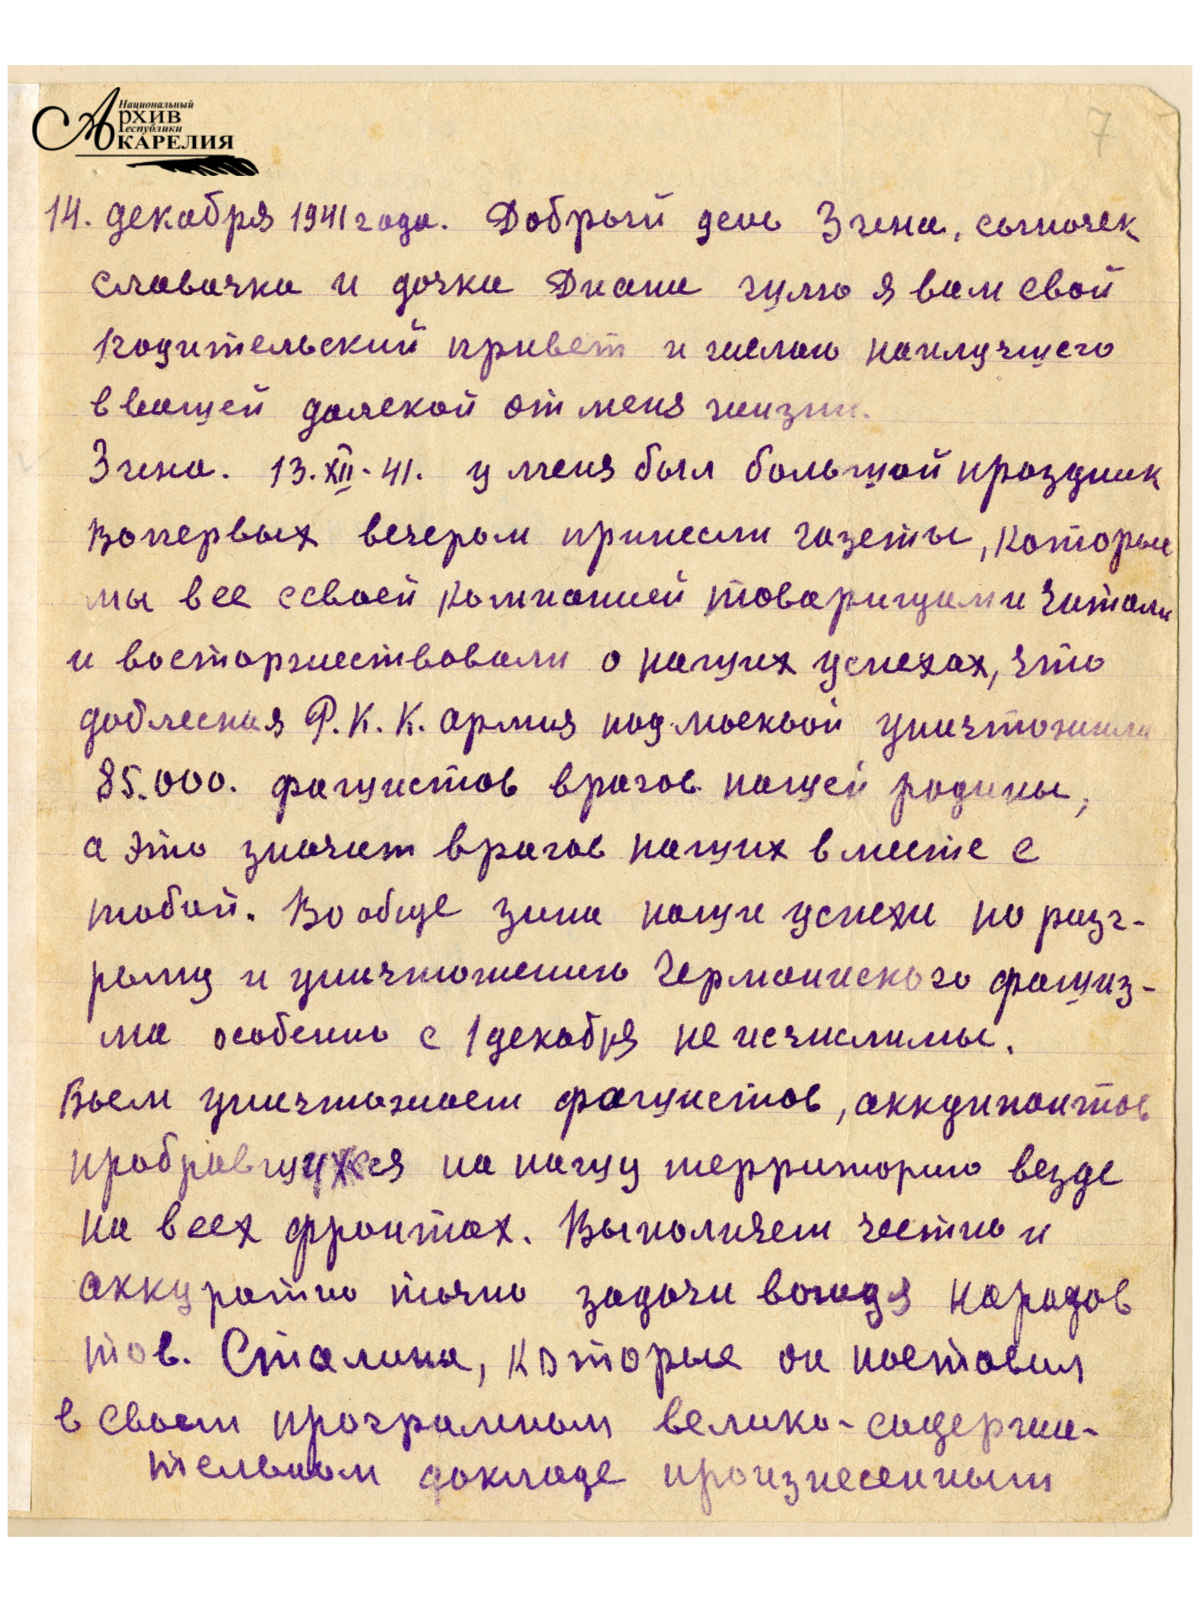 Национальный
Архив
Республики
Карелия
7
14. декабря 1941 года. Добрый день Зина, сыночек
славочка и дочка Диана шлю я вам свой
родительский привет и желаю наилучшего
в вашей далекой от меня жизни.
Зина. 13.XII-41. у меня был большой праздник
вопервых вечером принесли газеты, которые
мы все ссвоей компанией товарищами читали
и восторжествовали о наших успехах, что
доблесная Р.К.К. армия под москвой уничтожила
85.000. фашистов врагов нашей родины,
а это значит врагов наших вместе с
тобой. Вообще зина наши успехи по разг-
рому и уничтожению Германиского фашиз-
ма особенно с 1 декабря не исчислимы.
Бьем уничтожаем фашистов, аккупантов
пробравшихся на нашу территорию везде
на всех фронтах. Выполняем честно и
аккуратно точно задачи вождя народов
тов. Сталина, которые он поставил
в своем програмном велико-содержа-
тельном докладе произнесенным